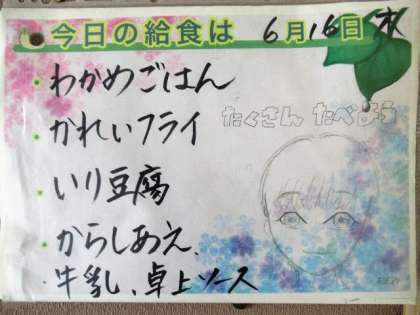 今日の給食は 6月16日 水
・わかめごはん
たくさん たべよう
・かれいフライ
・いり豆腐
・からしあえ、
・牛乳、卓上ソース